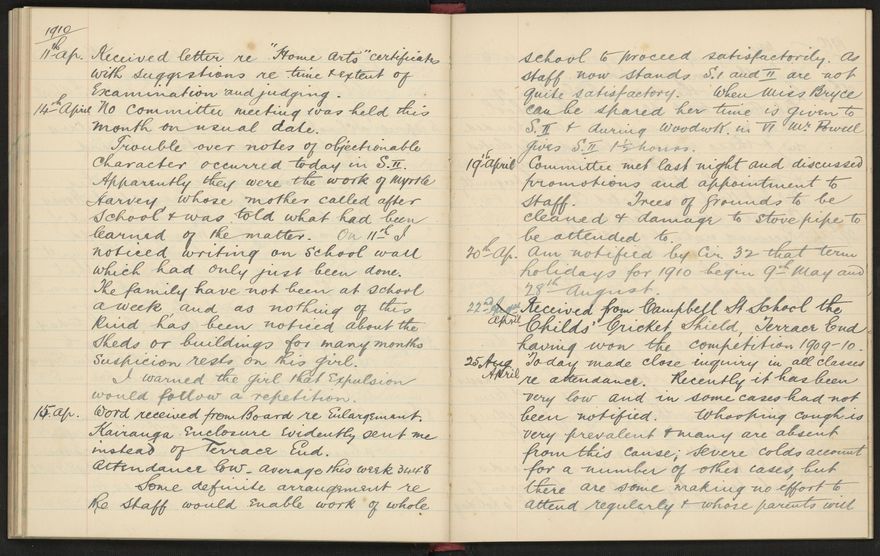 1910
11th Ap. Received letter re "Home Arts" certificates
with suggestions re time & extent of
Examination and judging.
14th April No Committee meeting was held this
month on usual date.
Trouble over notes of objectionable
character occurred today in S.II.
Apparently they were the work of Myrtle
Harvey whose mother called after
School & was told what had been
learned of the matter. On 11th I
noticed writing on School wall
which had only just been done.
The family have not been at school
a week and as nothing of this
kind has been noticed about the
sheds or buildings for many months
suspicion rests on this girl.
I warned the girl that Expulsion
would follow a repetition.
15. Ap. Word received from Board re Enlargement.
Kairanga Enclosure Evidently sent me
instead of Terrace End.
Attendance low - average this week 344.8
Some definite arrangement re
the staff would enable work of whole
school to proceed satisfactorily. As
staff now stands S.I and II are not
quite satisfactory. When Miss Bryce
can be spared her time is given to
S.II & during Woodwk. in VI Mr Powell
gives S.II 1½ hours.
19th April Committee met last night and discussed
promotions and appointment to
staff. Trees of grounds to be
cleaned & damage to stove pipe to
be attended to.
20th Ap. Am notified by Cir. 32 that term
holidays for 1910 begin 9th May and
28th August.
22nd April Received from Campbell St School the
Childs' Cricket Shield, Terrace End
having won the competition 1909-10.
25 Aug April Today made close inquiry in all classes
re attendance. Recently it has been
very low and in some cases had not
been notified. Whooping cough is
very prevalent & many are absent
from this cause; severe colds account
for a number of other cases, but
there are some making no effort to
attend regularly & whose parents will